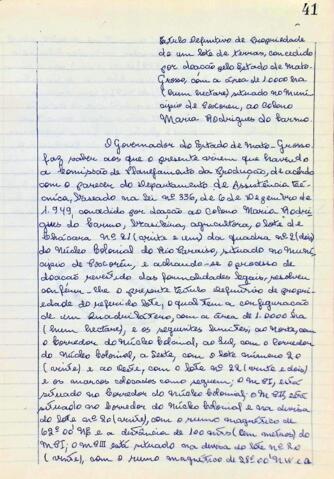 41
Título Definitivo de Propriedade
de um lote de terras, concedido
por doação pelo Estado de Mato-
Grosso, com a área de 1.0000 ha
(hum hectare), situado no Muni
cípio de ao Colono
Maria Rodrigues do Carmo.
O Governador do Estado de Mato-Grosso,
faz saber aos que o presente virem que havendo
a Comissão de Planejamento da Produção, de acôrdo
com o parecer do Departamento de Assistência Téc
nica, baseado na lei Nº 336, de 6 de Dezembro de
1.949, concedido por doação ao Colono Maria Rodri
gues do Carmo, brasileira, agricultora, o lote de
Chácara nº 21 (vinte e um) da quadra nº 2 (dois)
do Núcleo Colonial do situado no Muni
cípio de e achando-se o processo de
doação revestido das formalidades legais, resolveu
conferir-lhe o presente Título Definitivo de propri
edade do referido lote, o qual tem a configuração
de um Quadrilátero, com a área de 1.0000 ha
(hum hectare), e os seguintes limites; ao Norte, com
o Corredor do Núcleo Colonial, ao Sul, com o Corredor
do Núcleo Colonial, a Leste, com o lote número 20
(vinte) e ao Oeste, com o lote nº 22 (vinte e dois)
e os marcos colocados como seguem; O M I, está
situado no Corredor do Núcleo Colonial; o M II, está
situado no Corredor do Núcleo Colonial e na divisa
do lote nº 20 (vinte), com o rumo magnético de
62º 00' NE e a distância de 100 mts (cem metros) do
M I; O M III está situado na divisa do lote nº 20
(vinte), com o rumo magnético de 28º 00' NW e a